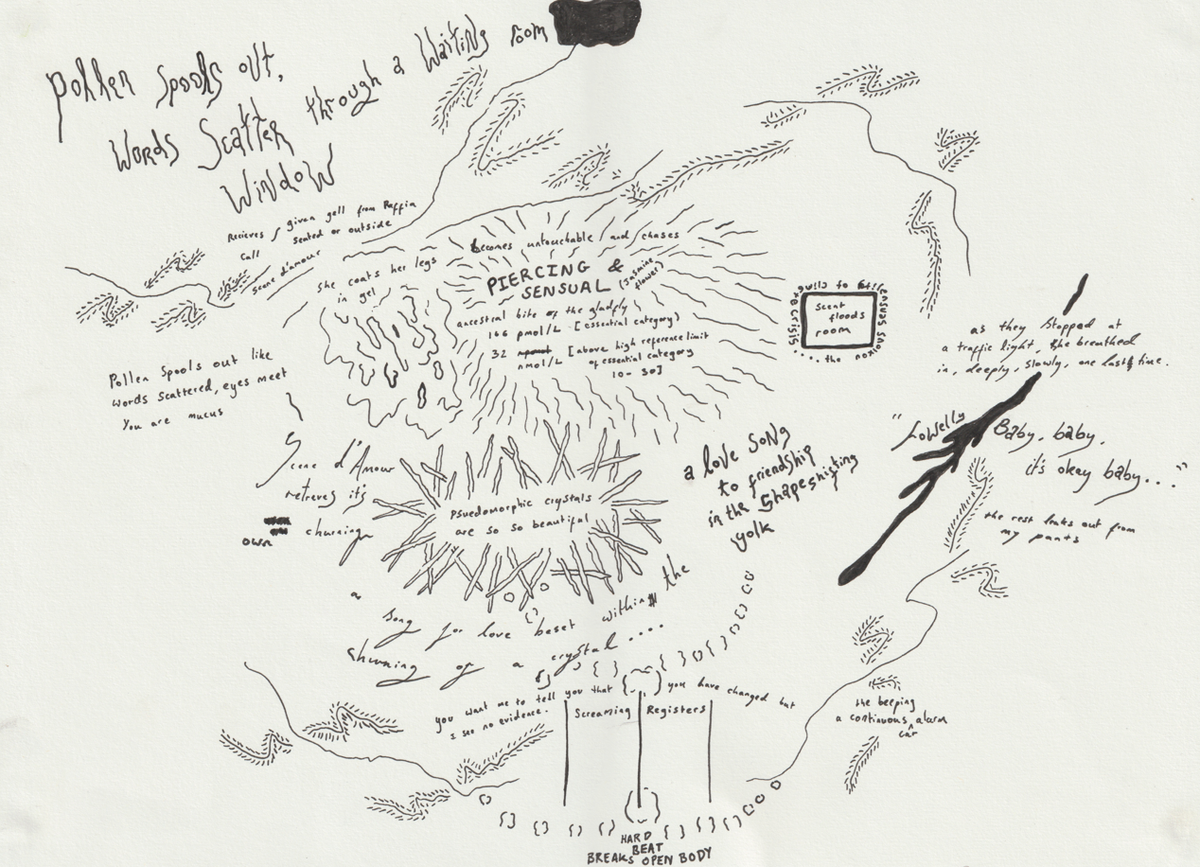 Pollen Spools out,
Words Scatter through a Waiting room
Window
Recieves / given gell from Raffia
Call seated or outside
scene d'amour
she coats her legs
in gel
becomes untouchable and chases
PIERCING &
SENSUAL (Jasmine
flower)
ancestral bite of the gladfly
146 pmol/L [essential category)
32 nmol/L [above high reference limit
of essential category
10-30]
Scent
floods
room
.... the noxious senses
to clime
the crisis
as they stopped at
a traffic light, she breathed
in, deeply, slowly, one last time.
Pollen Spools out like
words scattered, eyes meet
You are mucus
"Lowelly Baby, baby,
it's okay baby..."
the rest leaks out from
my pants
Scene d'Amour
retreves it's
own churning
Psuedomorphic crystals
are so so beautiful
a love song
to friendship
in the shapeshifting
yolk
a
song for love beset within the
churning of a crystal ....
you want me to tell you that you have changed but
I see no evidence.
Screaming Registers
the beeping
a continuous alarm
car
HARD
BEAT
BREAKS OPEN BODY